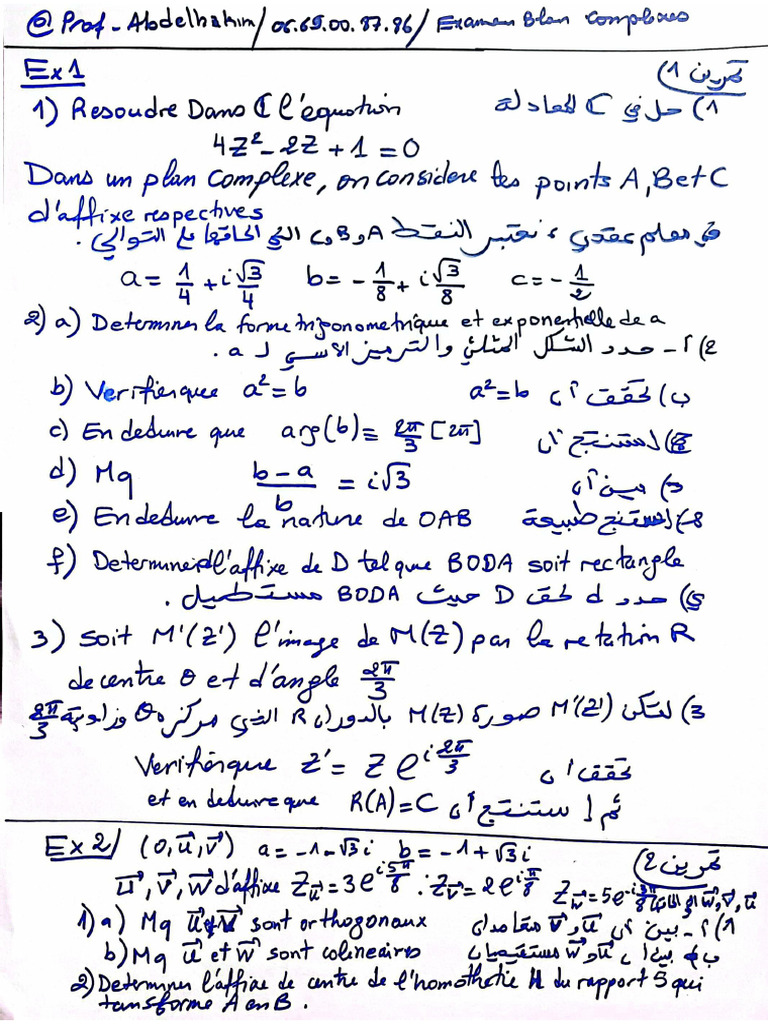 @ Prof - Abdelhakim / 06.69.00.87.86 / Examen Blan Complexes
Ex1 تمرين 1)
1) Resoudre Dans ℂ l'equation 1) حل في ℂ المعادلة
4Z² - 2Z + 1 = 0
Dans un plan complexe, on considere les points A, B et C
d'affixe respectives
في معلم عقدي، نعتبر النقط A و B و C التي الحاقها على التوالي.
a = 1/4 + i√3/4 b = -1/8 + i√3/8 c = -1/2
2) a) Determiner la forme trigonometrique et exponentielle de a
2) أ - حدد الشكل المثلثي والترميز الأسي لـ a.
b) Verifier que a² = b ب) تحقق أن a² = b
c) En deduire que arg(b) ≡ 2π/3 [2π] استنتج أن
d) Mq (b-a)/b = i√3 د) بين أن
e) En deduire la nature de OAB استنتج طبيعة
f) Determiner l'affixe de D tel que BODA soit rectangle
ي) حدد d لحق D حيث BODA مستطيل.
3) soit M'(Z') l'image de M(Z) par la rotation R
de centre O et d'angle 2π/3
3) لتكن M'(Z') صورة M(Z) بالدوران R الذي مركزه O وزاويته 2π/3
Verifier que Z' = Z e^(i2π/3) تحقق أن
et en deduire que R(A) = C ثم استنتج أن
Ex 2/ (O, u⃗, v⃗) a = -1-√3i b = -1+√3i تمرين 2)
u⃗, v⃗, w⃗ d'affixe Z_u⃗ = 3e^(i5π/8) ; Z_v⃗ = 2e^(iπ/8) Z_w⃗ = 5e^(-i3π/8) u⃗, v⃗, w⃗
1) a) Mq u⃗ et v⃗ sont orthogonaux 1) أ - بين أن u⃗ و v⃗ متعامدان
b) Mq u⃗ et w⃗ sont colineaires ب) بين أن u⃗ و w⃗ مستقيميتان
2) Determiner l'affixe de centre de l'homothetie H du rapport 5 qui
transforme A en B.